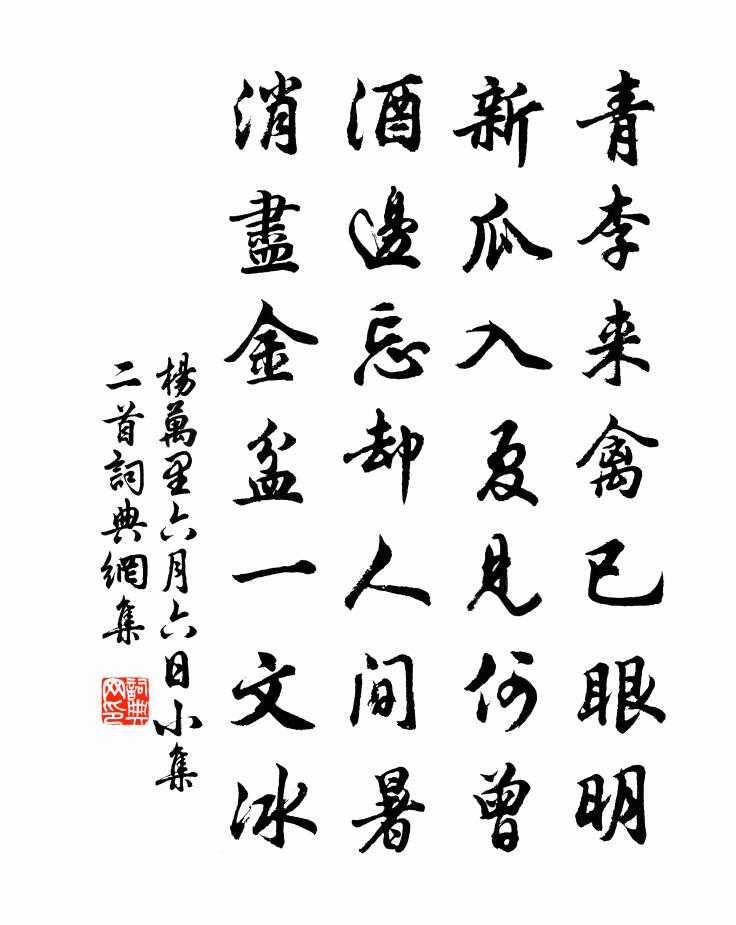 青李来禽已眼明
新瓜入夏見何曾
酒邊忘却人間暑
消盡金盆一文冰
楊萬里六月六日小集
二首詞典網集
詞典网印